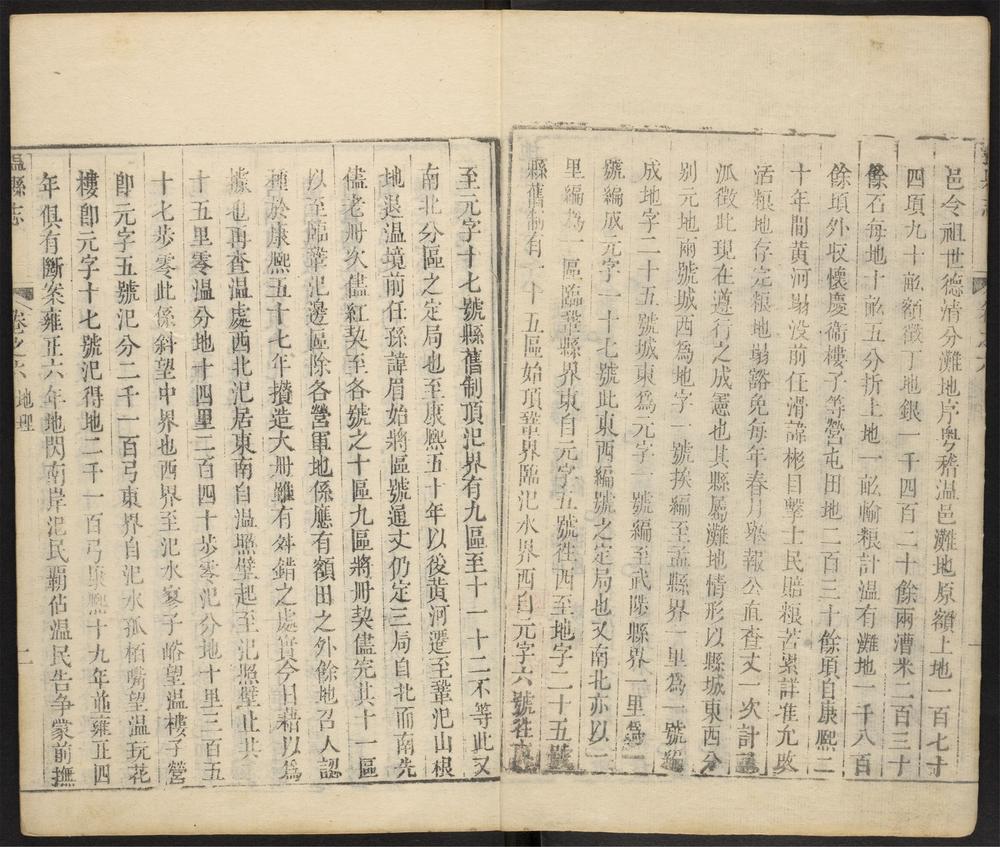 邑令祖世德清分灘地序粵稽溫邑灘地原額上地一百七十
四頃九十畝額徵丁地銀一千四百二十餘兩漕米二百三十
餘石每地十畝五分折上地一畝輸粮計溫有灘地一千八百
餘頃外收懷慶衛樓子等營屯田地二百三十餘頃自康熙二
十年間黃河塌没前任滑諱彬目擊士民賠粮苦累詳准允改
活粮地存完粮地塌豁免每年春月舉報公直查丈一次計
派徵此現在遵行之成憲也其縣屬灘地情形以縣城東西分
別元地兩號城西為地字一號挨編至孟縣界一里為一號編
成地字二十五號城東為元字一號編至武陟縣界一里為一
號編成元字一十七號此東西編號之定局也又南北亦以一
里編為一區臨鞏縣界東自元字五號徃西至地字二十五號
縣舊制有一十五區始頂鞏界臨汜水界西自元字六號徃東
至元字十七號縣舊制頂汜界有九區至十一十二不等此又
南北分區之定局也至康熙五十年以後黃河遷至鞏汜山根
地退溫境前任孫諱眉始將區號通丈仍定三局自北而南先
儘老册次儘紅契至各號之十區九區將册契儘完其十一區
以至臨鞏汜邊區除各營軍地係應有額田之外餘地召人認
種於康熙五十七年攅造大册雖有舛錯之處實今日藉以為
據也再查溫處西北汜居東南自溫照壁起至汜照壁止共
十五里零溫分地十四里二百四十步零汜分地十里三百五
十七步零此係斜望中界也西界至汜水寥子峪望溫樓子營
卽元字五號汜分二千一百弓東界自汜水孤柏嘴望溫玩花
樓卽元字十七號汜得地二千一百弓康熙十九年並雍正四
年俱有斷案雍正六年地閃南岸汜民覇佔溫民告爭蒙前撫
溫縣志
卷之六 地理
二